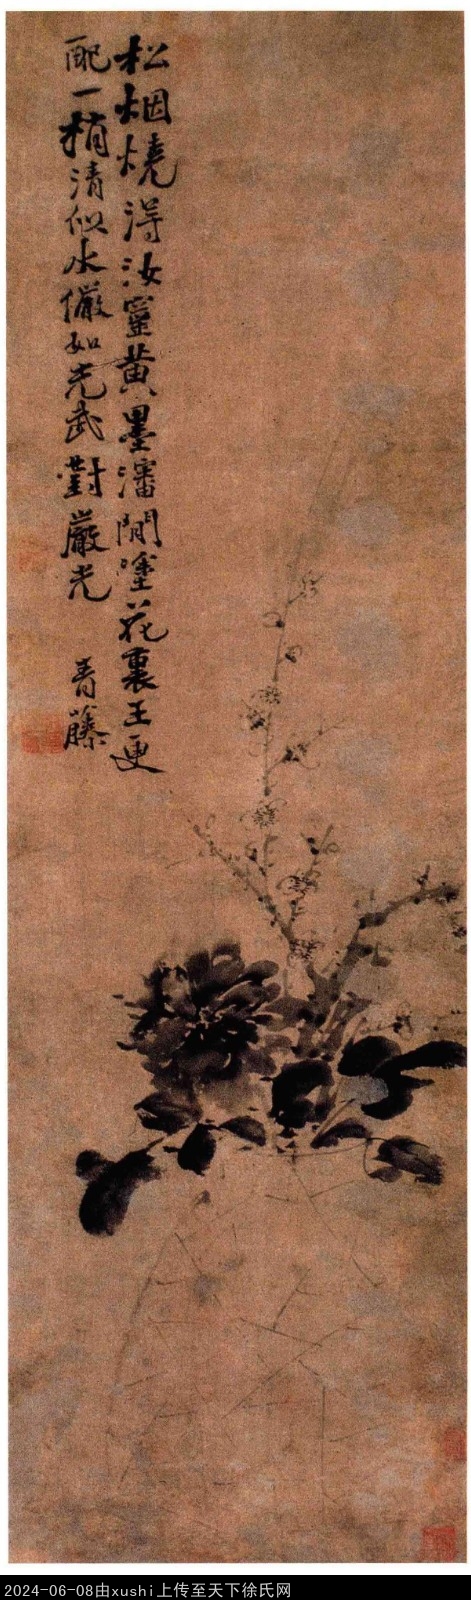 松烟燒得汝靈黄墨瀋閒塗花裏王更
配一梢清似水儼如光武對嚴光
青藤
2024-06-08由xushi上传至天下徐氏网